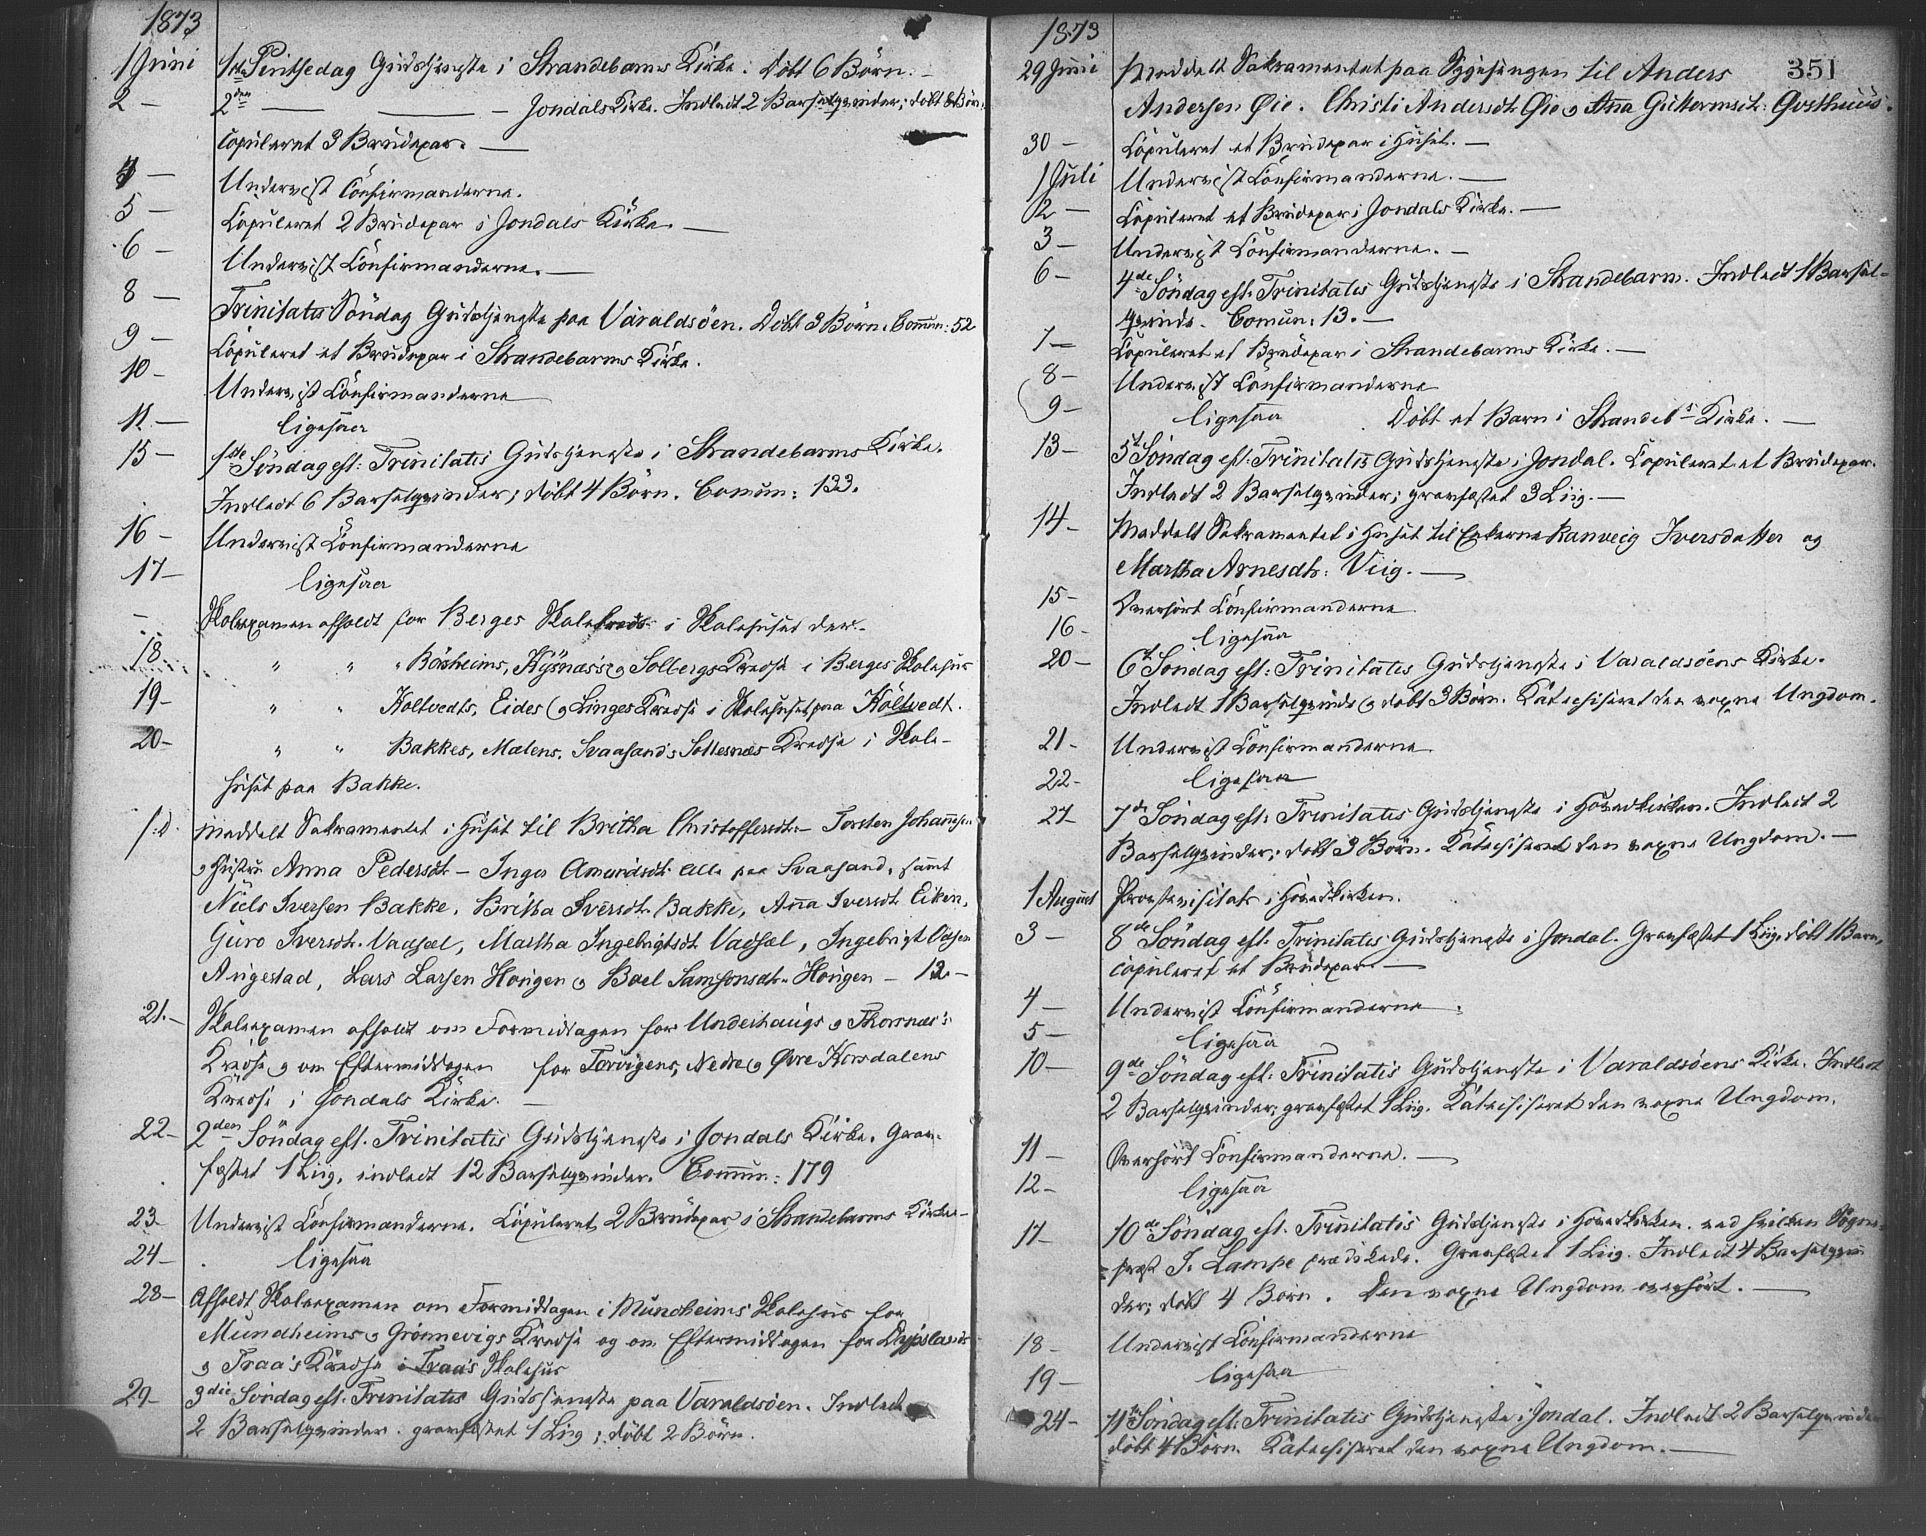 1873
1 Juni 1ste Pintsedag Gudstjeneste i Strandebarms Kirke. Döbt 6 Börn. -
2 - 2den — — - Jondals Kirke. Indledt 2 Barselqvinder; döbt 6 Börn;
copuleret 3 Brudepar. —
4 - Underviist Confirmanderne.
5 - Copuleret 2 Brudepar i Jondals Kirke. —
6 - Underviist Confirmanderne. —
8 - Trinitatis Söndag Gudstjeneste paa Varaldsöen. Döbt 3 Börn. Comun: 52
9 - Copuleret et Brudepar i Strandebarms Kirke.
10 - Underviist Confirmanderne —
11. - ligesaa
15 - 1ste Söndag eft: Trinitatis Gudstjeneste i Strandebarms Kirke.
Indledt 6 Barselqvinder; döbt 4 Börn. Comun: 133.
16 - Underviist Confirmanderne
17 - ligesaa
- Skoleexamen afholdt for Berges Skolekreds i Skolehuset der.
18 " " " Börsheims, Kysnæs's og Solbergs Kredse i Berges Skolehus
19 - " " Holtvedts, Eides og Linges Kredse i Skolehuset paa Holtvedt.
20 - " " Bakkes, Mælens, Svaasand's Sollesnæs Kredse i Skole-
huset paa Bakke.
s: D. Meddelt Sakramentet i Huset til Britha Christoffersdtr - Torsten Johannesen
og Hustru Anna Pedersdtr - Inger Amundsdtr alle paa Svaasand, samt
Niels Iversen Bakke, Britha Iversdtr Bakke, Anna Iversdtr Eiken,
Guro Iversdtr. Vadsæl, Martha Ingebrigtsdt Vadsæl, Ingebrigt Odsen
Augestad, Lars Larsen Hougen og Boel Samsonsdtr. Hougen - 12 -
21. - Skoleexamen afholdt om Formiddagen for Underhaugs og Thornæs's
Kredse og om Eftermiddagen for Torvigens, Nedre og Øvre Krosdalens
Kredse i Jondals Kirke. —
22 - 2den Söndag eft. Trinitatis Gudstjeneste i Jondals Kirke. Grav-
fæstet 1 Liig, indledt 12 Barselqvinder. Comun: 179
23 - Underviist Confirmanderne. Copuleret 2 Brudepar i Strandebarms Kirke -
24 - ligesaa
28 - Afholdt Skoleexamen om Formiddagen i Mundheims Skolehus for
Mundheims og Grönnevigs Kredse og om Eftermiddagen for Dysslands
og Traa's Kredse i Traa's Skolehus
29 - 3die Söndag eft. Trinitatis Gudstjeneste paa Varaldsöen. Indledt
2 Barselqvinder. gravfæstet 1 Liig; döbt 2 Börn.
1873
351
29 Juni Meddelt Sakramentet paa Sygesengen til Anders
Andersen Øie. Christi Andersdtr Øie og Anna Guttormsdtr: Qvithuus.
30 - Copuleret et Brudepar i Huset. -
1 Juli Underviist Confirmanderne. —
2 - Copuleret et Brudepar i Jondals Kirke. -
3 - Underviist Confirmanderne. -
6 - 4de Söndag eft: Trinitatis Gudstjeneste i Strandebarm. Indledt 1 Barsel-
qvinde. Comun: 13. -
7 - Copuleret et Brudepar i Strandebarms Kirke. -
8 - Underviist Confirmanderne
9 - ligesaa Döbt et Barn i Strandebs Kirke. -
13 - 5te Söndag eft: Trinitatis Gudstjeneste i Jondal. Copuleret et Brudepar.
Indledt 2 Barselqvinder; gravfæstet 3 Liig. -
14 - Meddelt Sakramentet i Huset til Enkerne Ranveig Iversdatter og
Martha Arnesdtr: Viig. —
15 - Overhört Confirmanderne
16 - ligesaa
20 - 6te Söndag eft: Trinitatis Gudstjeneste i Varaldsöens Kirke.
Indledt 1 Barselqvinde og döbt 3 Börn. Katechiseret den voxne Ungdom.
21 - Underviist Confirmanderne
22 - ligesaa
27 - 7de Söndag eft: Trinitatis Gudstjeneste i Hovedkirken. Indledt 2
Barselqvinder; döbt 3 Börn. Katechiseret den voxne Ungdom. -
1 August Provstevisitats i Hovedkirken.
3 - 8de Söndag eft. Trinitatis Gudstjeneste i Jondal. Gravfæstet 1 Liig, döbt 1 Barn,
copuleret et Brudepar. —
4 - Underviist Confirmanderne
5 - ligesaa
10 - 9de Söndag eft: Trinitatis Gudstjeneste i Varaldsöens Kirke. Indledt
2 Barselqvinder; gravfæstet 1 Liig. Katechiseret den voxne Ungdom.
11 - Overhört Confirmanderne. —
12 - ligesaa
17 - 10de Söndag eft. Trinitatis Gudstjeneste i Hovedkirken. ved hvilken Sogne-
præst J. Lampe prædikede. Gravfæstet 1 Liig. Indledt 4 Barselqvin
der; döbt 4 Börn. Den voxne Ungdom overhört. —
18 - Underviist Confirmanderne
19 - ligesaa
24 - 11te Söndag eft: Trinitatis Gudstjeneste i Jondal. Indledt 2 Barselqvinder
döbt 4 Börn. Katechiseret den voxne Ungdom. —